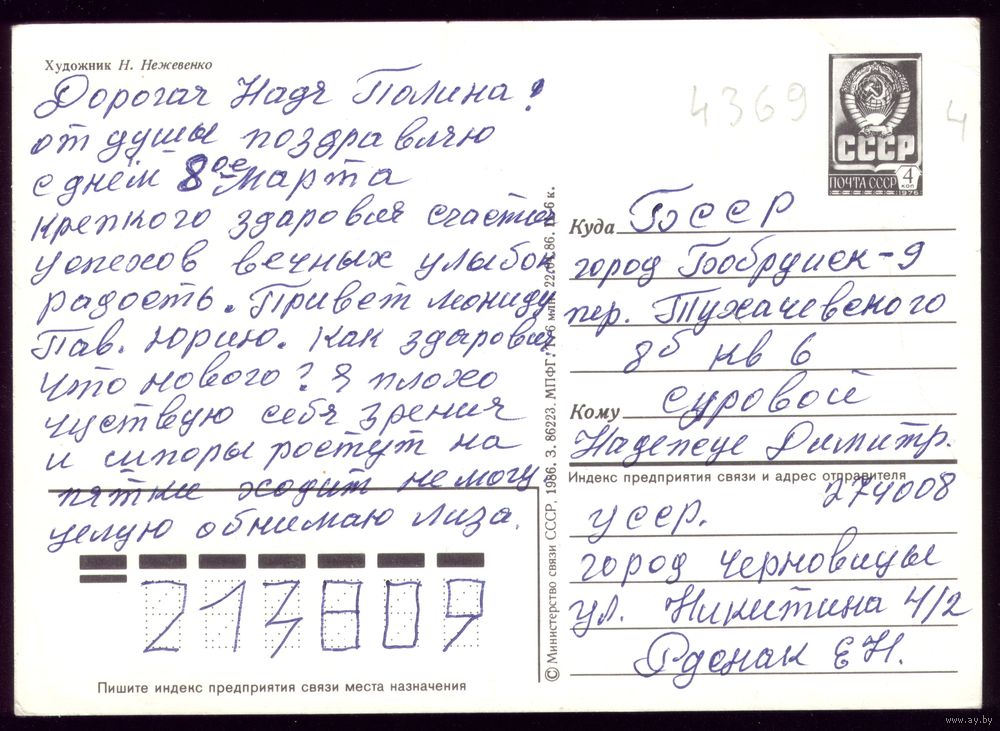 Художник Н. Нежевенко
Дорогая Надя Полина!
от душы поздравляю
с днём 8ое марта
крепкого здаровия счастия
успехов вечных улыбок
радость. Привет Леониду
Пав. Юрию. Как здаровия
что нового? Я плохо
чуствую себя зрения
и шпоры ростут на
пятке ходит не могу
целую обнимаю Лиза.
213809
Пишите индекс предприятия связи места назначения
© Министерство связи СССР, 1986. З. 86223. МПФГ.
4369
4
СССР
ПОЧТА СССР
4
коп
1976
Куда БССР
город Бобруйск-9
пер. Тухачевского
8б кв 6
Кому Суровой
Надежде Димитр.
Индекс предприятия связи и адрес отправителя
274008
УССР.
город Черновицы
ул. Никитина 4/2
Е Н.
www.ay.by